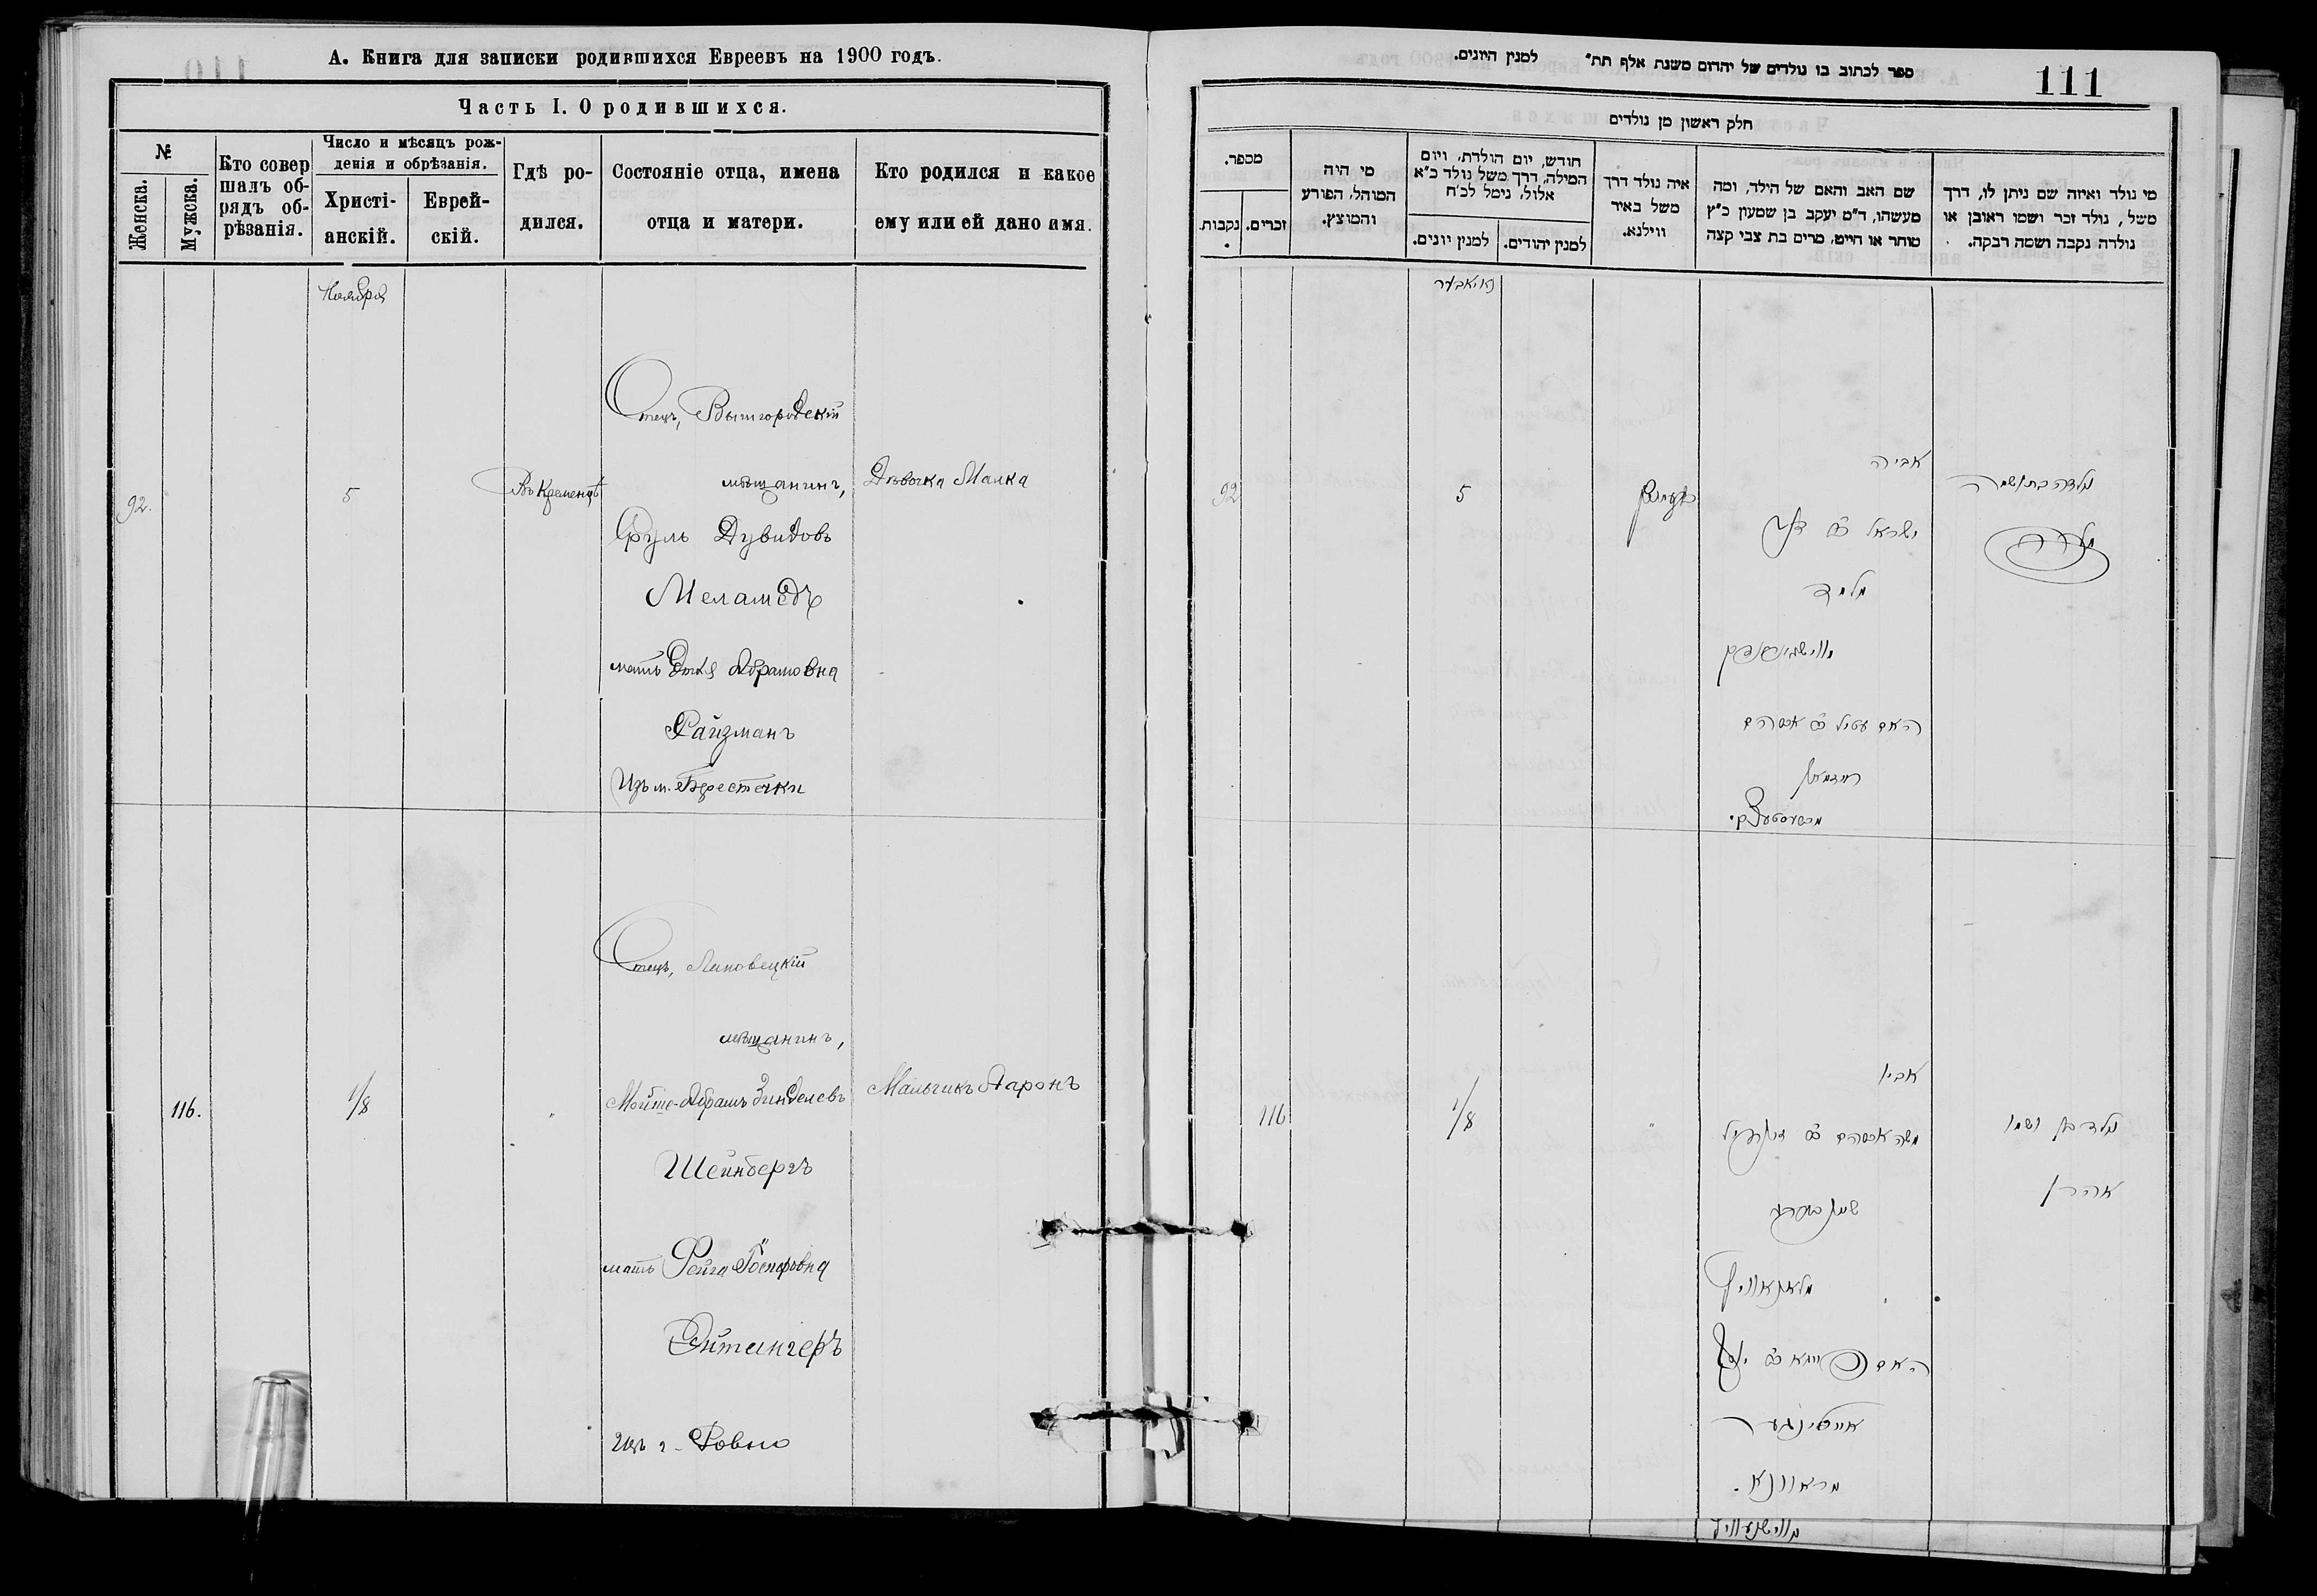 А. Книга для записки родившихся Евреевъ на 1900 годъ.
Часть I. О родившихся.
№
Женска.
Мужска.
Кто совер
шалъ об-
рядъ об-
рѣзанія.
Число и мѣсяцъ рож-
денія и обрѣзанія.
Христі-
анскій.
Еврей-
скій.
Гдѣ ро-
дился.
Состояніе отца, имена
отца и матери.
Кто родился и какое
ему или ей дано имя.
Ноября
92.
5
Въ Кременцѣ
Отецъ, Вышгородскій
мѣщанинъ,
Сруль Дувидовъ
Меламедъ
мать Этля Абрамовна
Райзманъ
Изъ м. Берестечки
Дѣвочка Малка
116.
1/8
"
Отецъ, Лановецкій
мѣщанинъ,
Мойше-Абрамъ Зинделевъ
Шейнбергъ
мать
Эйтингеръ
Изъ г. Ровно
Мальчикъ Ааронъ
ספר לכתוב בו נולדים של יהדום משנת אלף תת״ למנין היונים.
111
חלק ראשון מן נולדים
מכפר.
נקבות.
זכרים.
מי היה
המוהל, הפורע
והמוצץ.
חודש, יום הולדת, ויום
המילה, דרך משל נולד כ״א
אלול, נימל לכ״ח
למנין יונים.
למנין יהודים.
איה נולד דרך
משל באיר
ווילנא.
שם האב והאם של הילד, ומה
מעשהו, ד״מ יעקב בן שמעון כ״ץ
סוחר או חייט, מרים בת צבי קצה
מי נולד ואיזה שם ניתן לו, דרך
משל, נולד זכר ושמו ראובן או
נולדה נקבה ושמה רבקה.
נאיאבער
92
5
אביה
ישראל ב״ר דוד
מלמד
האם עטיל ב״ר אברהם
רייזמאן
נולדה בת ושמה
מלכה
116
1/8
"
אביו
משה אברהם ב״ר זינדיל
שיינבערג
האם
אייטינגער
מראוונא.
נולד בן ושמו
אהרן